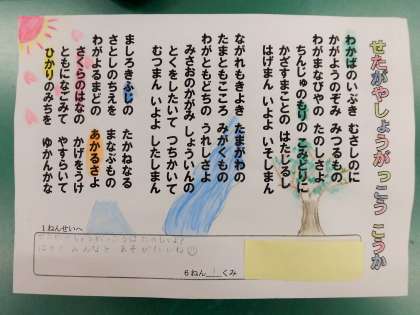 せたがやしょうがっこう こうか
わかばのいぶき むさしのに
かがようのぞみ みつるもの
わがまなびやの たのしさよ
ちんじゅのもりの こみどりに
かざすまことの はたじるし
はげまん いよよ いそしまん
ながれもきよき たまがわの
たまともこころ みがくもの
わがともどちの うれしさよ
みさおのかがみ しょういんの
とくをしたいて つちかいて
むつまん いよよ したしまん
ましろきふじの たかねなる
さとしのちえを まなぶもの
わがよるまどの あかるさよ
さくらのはなの かげをうけ
ともになごみて やすらいて
ひかりのみちを ゆかんかな
1ねんせいへ
6ねん1くみ